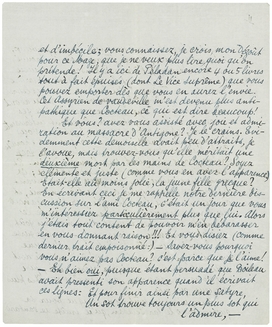 et d'imbéciles vous connaissez, je crois, mon dégoût
pour ce Joaz, que je ne veux plus lire, quoi qu'on
prétende! Il y a ici de Péladan encore 4 ou 5 livres
sont à fait épuisés (dont Le Vice suprême) que vous
pouvez emporter dès que vous en aurez l'envie.
Cet Assyrien de vaudeville m'est devenu plus anti-
pathique que Cocteau, ce qui est dire beaucoup!
Et vous? avez-vous assisté avec joie et admi-
ration au massacre d'Antigone? Je le crains. Evi-
demment cette demoiselle avait peu d'attraits, je
l'avoue, mais trouvez-vous qu'elle méritait une
deuxième mort par les mains de Cocteau? Soyez
clémente et juste (comme vous en avez l'apparence)
était-elle moins jolie, la jeune fille grecque?
En écrivant ceci je me rappelle notre dernière dis-
cussion sur l'ami Cocteau, c'était un jour que vous
m'intéressiez particulièrement plus que lui. Alors
j'étais tout content de pouvoir m'en débarrasser
en vous donnant raison! (Si voulu dire) (comme
dernier trait empoisonné) — Savez-vous pourquoi
vous n'aimez pas Cocteau? C'est parce que je l'aime!
— Eh bien oui, puisque étant persuadé que Boileau
avait présent son apparence quand il écrivait
ces lignes: Et pour finir ainsi par une satyre,
Un sot trouve toujours un plus sot qui
l'admire, —